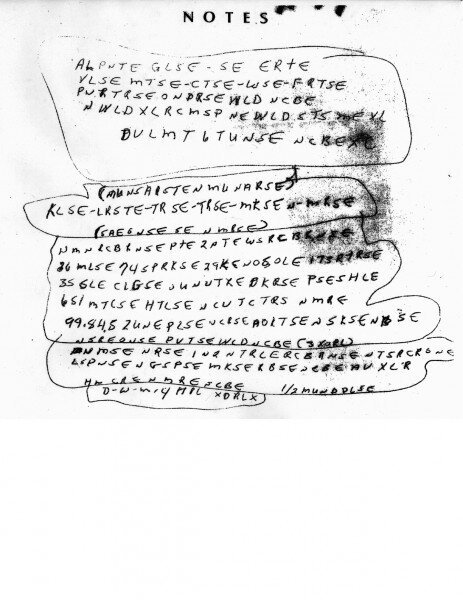 NOTES
ALPNTE GLSE-SE ERTE
VLSE MTSE-CTSE-WSE-FRTSE
PURTRSE ONDRSE WLD NCBE
NWLDXLRCMSP NEWLD STS ME XL
DULMT 6 TUNSE NCBE XL
(MUNSAISTEN MUNARSE)
KLSE-LRSTE-TRSE-TRSE-MKSEN-MRSE
(SAE6NSE SE N MRSE)
NMNRCBRNSE PTE2PTEWSRCBRNSE
36 MLSE 74 SPRKSE 29KENOSOLE 173RTRSE
35 GLE CLGSE UNUTXE DKRSE PSESHLE
651 MTCSE HTLSE NCUTCTRS NMRE
99.84.S2 UNE PLSE NCRSE AOLTSE NSKSE NSE
NSREONSE PVTSE WLD NCBE (3XORL)
NMSE NRSE INRNTRLERCBRNSE NTSRCRONE
LSPNSE NGSPSE MKSERBSE NCBE AUXLR
HMCRENMRENCBE 1/2 MUNDDLSE
D-W-M-4 MPL XDRLX